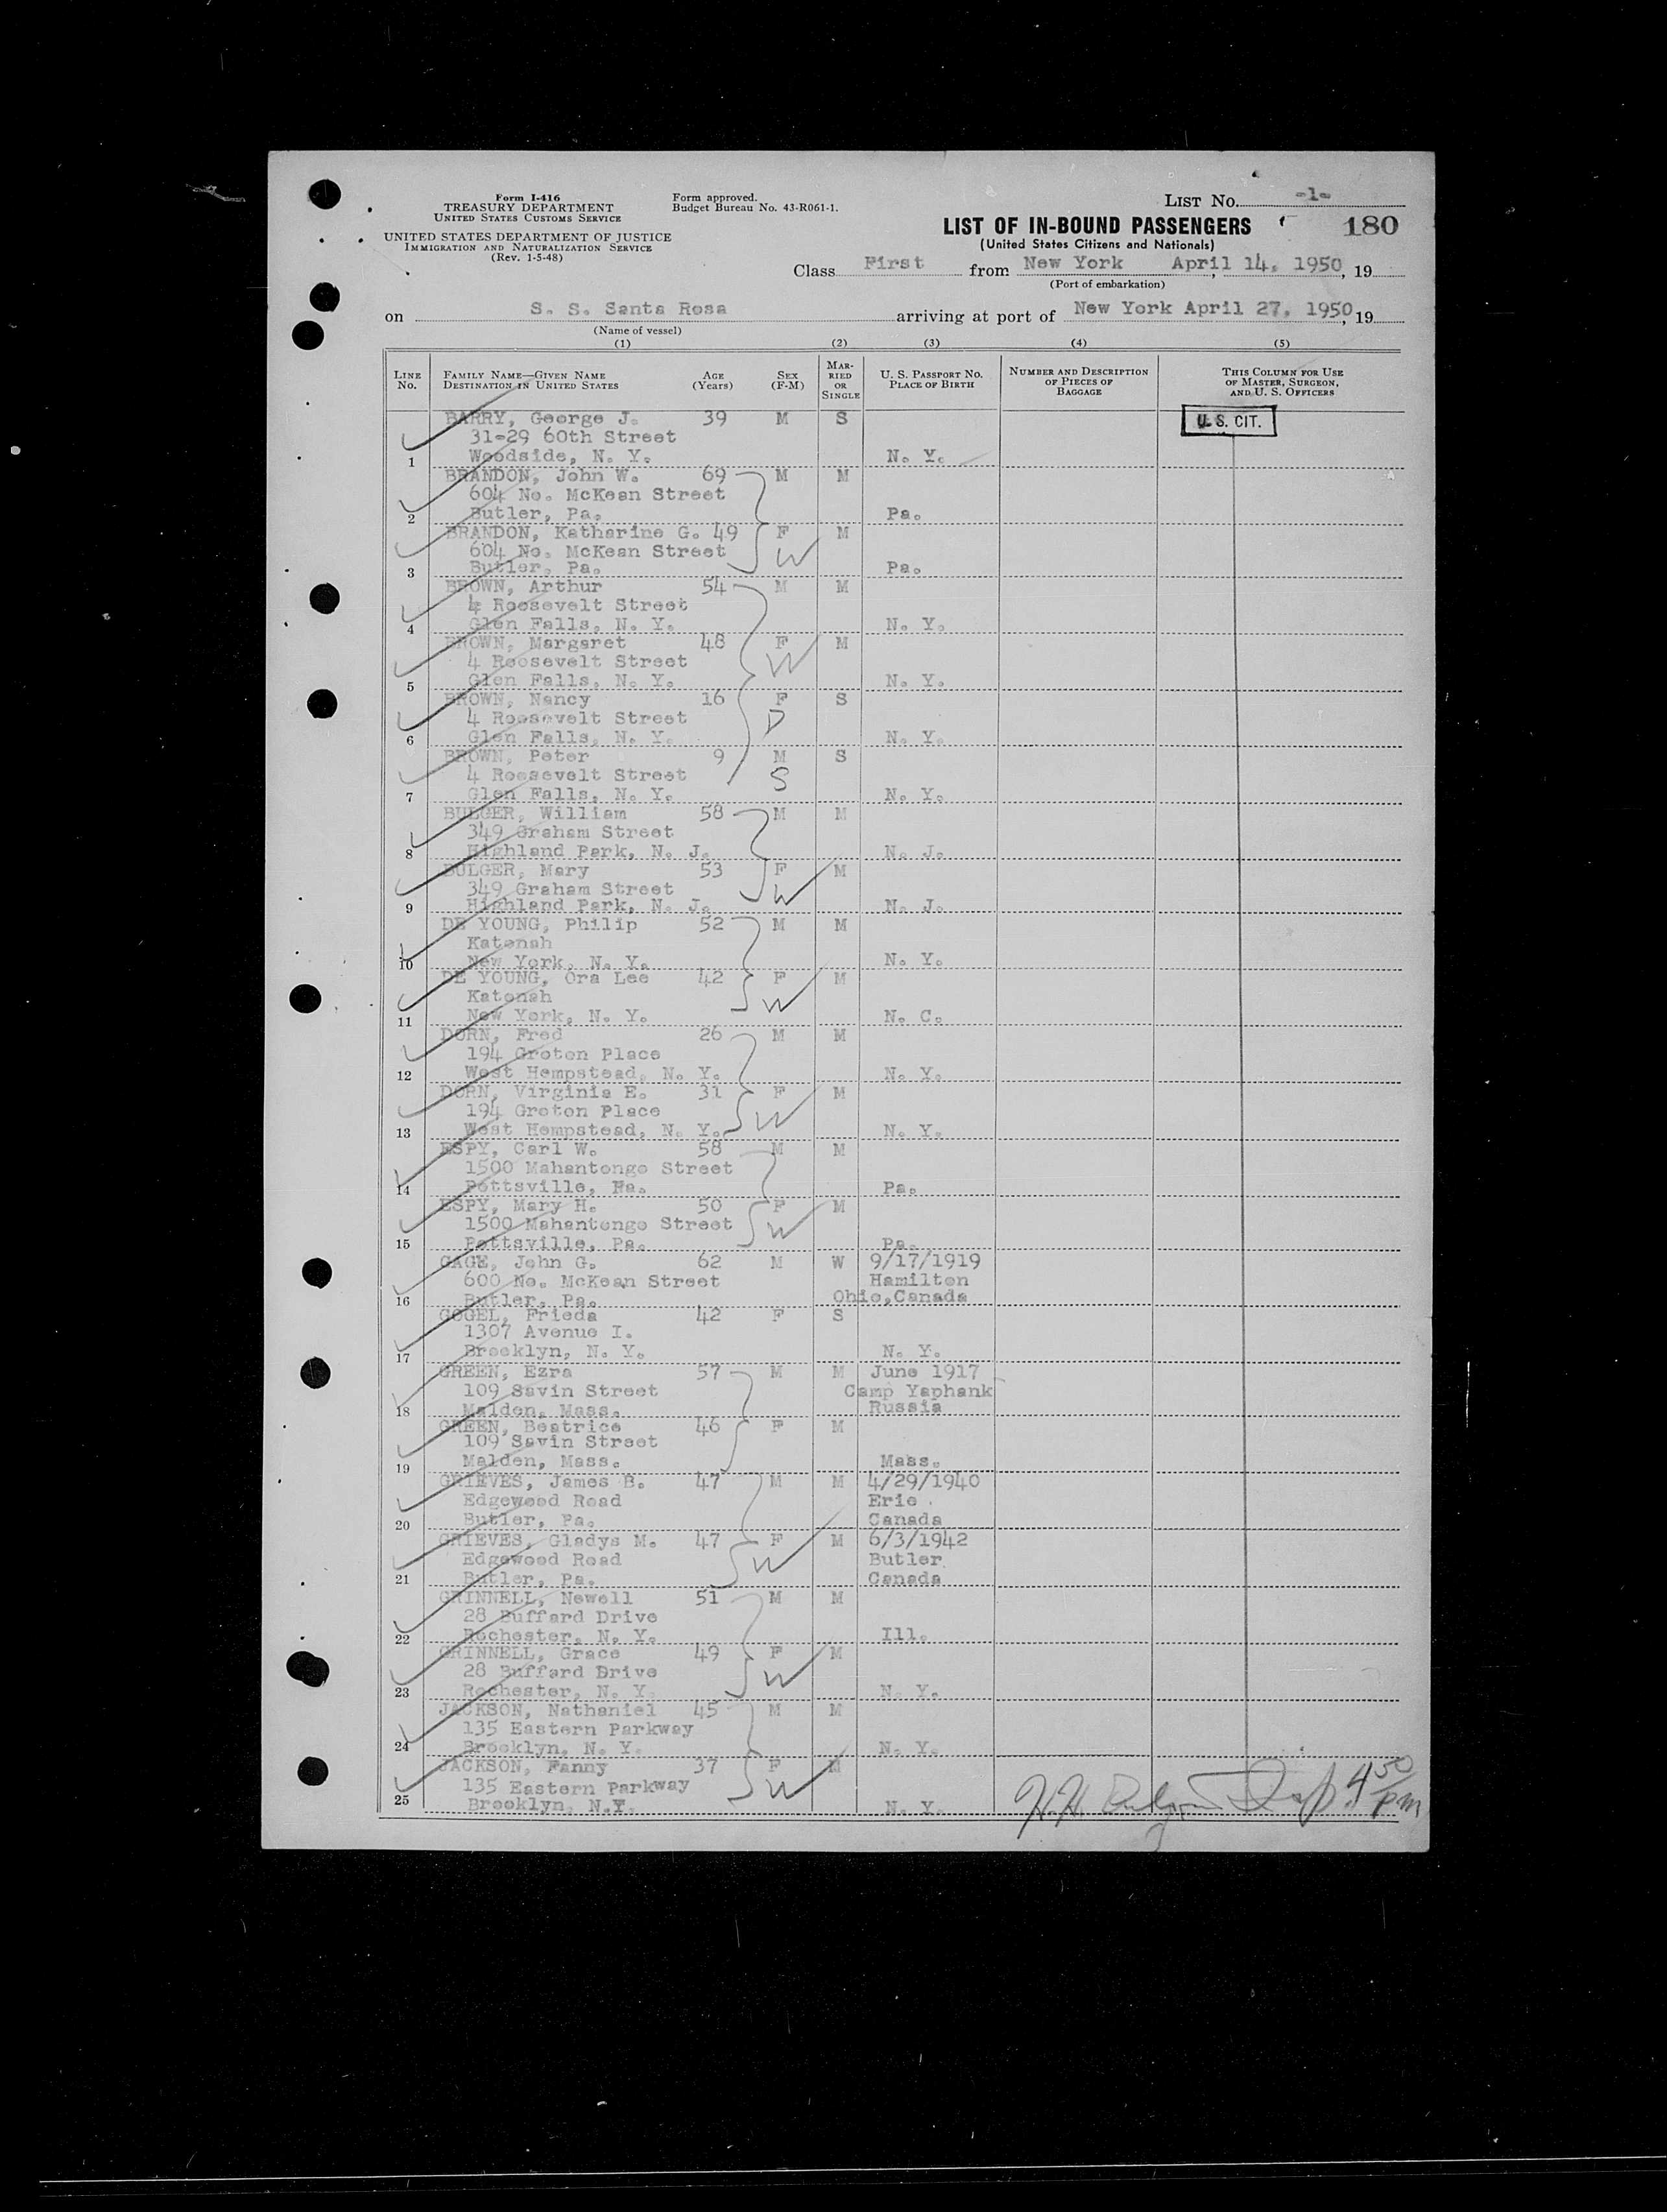 Form I-416
TREASURY DEPARTMENT
UNITED STATES CUSTOMS SERVICE
UNITED STATES DEPARTMENT OF JUSTICE
IMMIGRATION AND NATURALIZATION SERVICE
(Rev. 1-5-48)
Form approved.
Budget Bureau No. 43-R061-1.
LIST No. -1-
LIST OF IN-BOUND PASSENGERS
180
(United States Citizens and Nationals)
Class First from New York April 14, 1950, 19
(Port of embarkation)
on S. S. Santa Rosa arriving at port of New York April 27, 1950, 19
(Name of vessel)
(1) (2) (3) (4) (5)
LINE No.
FAMILY NAME—GIVEN NAME
DESTINATION IN UNITED STATES
AGE (Years)
SEX (F-M)
MARRIED OR SINGLE
U. S. PASSPORT NO.
PLACE OF BIRTH
NUMBER AND DESCRIPTION
OF PIECES OF
BAGGAGE
THIS COLUMN FOR USE
OF MASTER, SURGEON,
AND U. S. OFFICERS
U. S. CIT.
BARRY, George J. 39 M S
31-29 60th Street
1 Woodside, N. Y. N. Y.
BRANDON, John W. 69 M M
604 No. McKean Street
2 Butler, Pa. Pa.
BRANDON, Katharine G. 49 F M
604 No. McKean Street W
3 Butler, Pa. Pa.
BROWN, Arthur 54 M M
4 Roosevelt Street
4 Glen Falls, N. Y. N. Y.
BROWN, Margaret 48 F M
4 Roosevelt Street W
5 Glen Falls, N. Y. N. Y.
BROWN, Nancy 16 F S
4 Roosevelt Street D
6 Glen Falls, N. Y. N. Y.
BROWN, Peter 9 M S
4 Roosevelt Street S
7 Glen Falls, N. Y. N. Y.
BULGER, William 58 M M
349 Graham Street
8 Highland Park, N. J. N. J.
BULGER, Mary 53 F M
349 Graham Street W
9 Highland Park, N. J. N. J.
DE YOUNG, Philip 52 M M
Katonah
10 New York, N. Y. N. Y.
DE YOUNG, Ora Lee 42 F M
Katonah W
11 New York, N. Y. N. C.
DORN, Fred 26 M M
194 Groton Place
12 West Hempstead, N. Y. N. Y.
DORN, Virginia E. 31 F M
194 Groton Place W
13 West Hempstead, N. Y. N. Y.
ESPY, Carl W. 58 M M
1500 Mahantongo Street
14 Pottsville, Pa. Pa.
ESPY, Mary H. 50 F M
1500 Mahantongo Street W
15 Pottsville, Pa. Pa.
GAGE, John G. 62 M W 9/17/1919
600 No. McKean Street Hamilton
16 Butler, Pa. Ohio, Canada
GOGEL, Frieda 42 F S
1307 Avenue I.
17 Brooklyn, N. Y. N. Y.
GREEN, Ezra 57 M M June 1917
109 Savin Street Camp Yaphank
18 Malden, Mass. Russia
GREEN, Beatrice 46 F M
109 Savin Street
19 Malden, Mass. Mass.
GRIEVES, James B. 47 M M 4/29/1940
Edgewood Road Erie
20 Butler, Pa. Canada
GRIEVES, Gladys M. 47 F M 6/3/1942
Edgewood Road W Butler
21 Butler, Pa. Canada
GRINNELL, Newell 51 M M
28 Buffard Drive
22 Rochester, N. Y. Ill.
GRINNELL, Grace 49 F M
28 Buffard Drive W
23 Rochester, N. Y. N. Y.
JACKSON, Nathaniel 45 M M
135 Eastern Parkway
24 Brooklyn, N. Y. N. Y.
JACKSON, Fanny 37 F M
135 Eastern Parkway W
25 Brooklyn, N.Y. N. Y.
4 50 pm